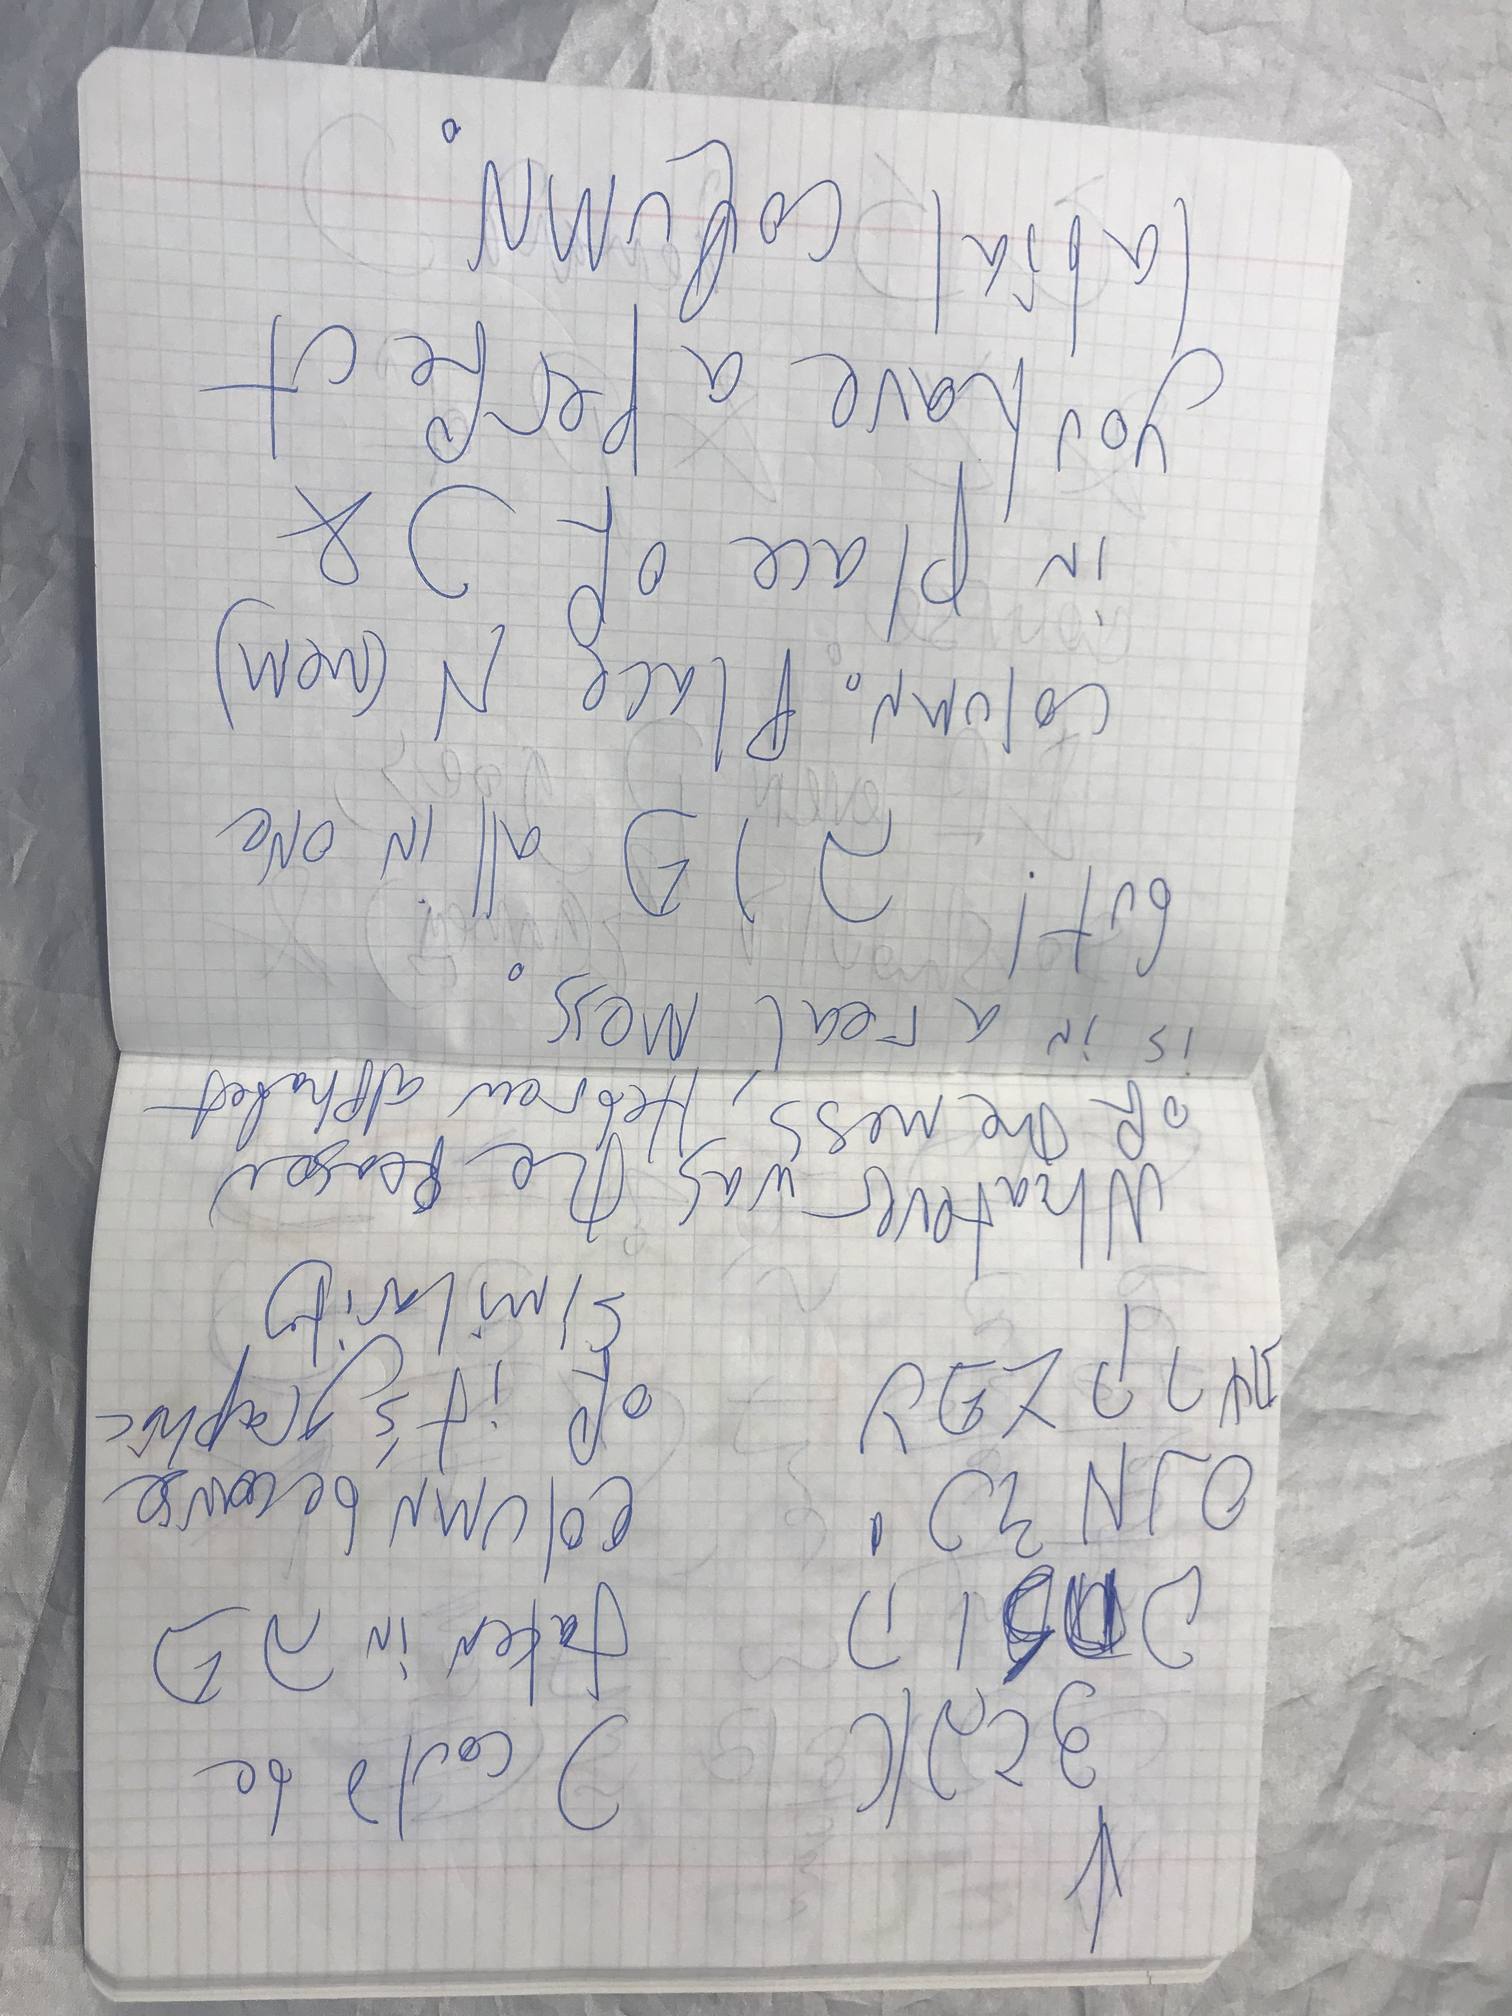 א ב ג ד
ה ו
י כ ל מ נ ס
ע פ צ ק ר ש ת
כ could be
taken in ב פ
column because
of it's graphic
similarity
Whatever was the reason
of the mess, Hebrew alphabet
is in a real mess.
but! ב ו פ all in one
column. Place מ (mem)
in place of כ &
you have a perfect
labial column.